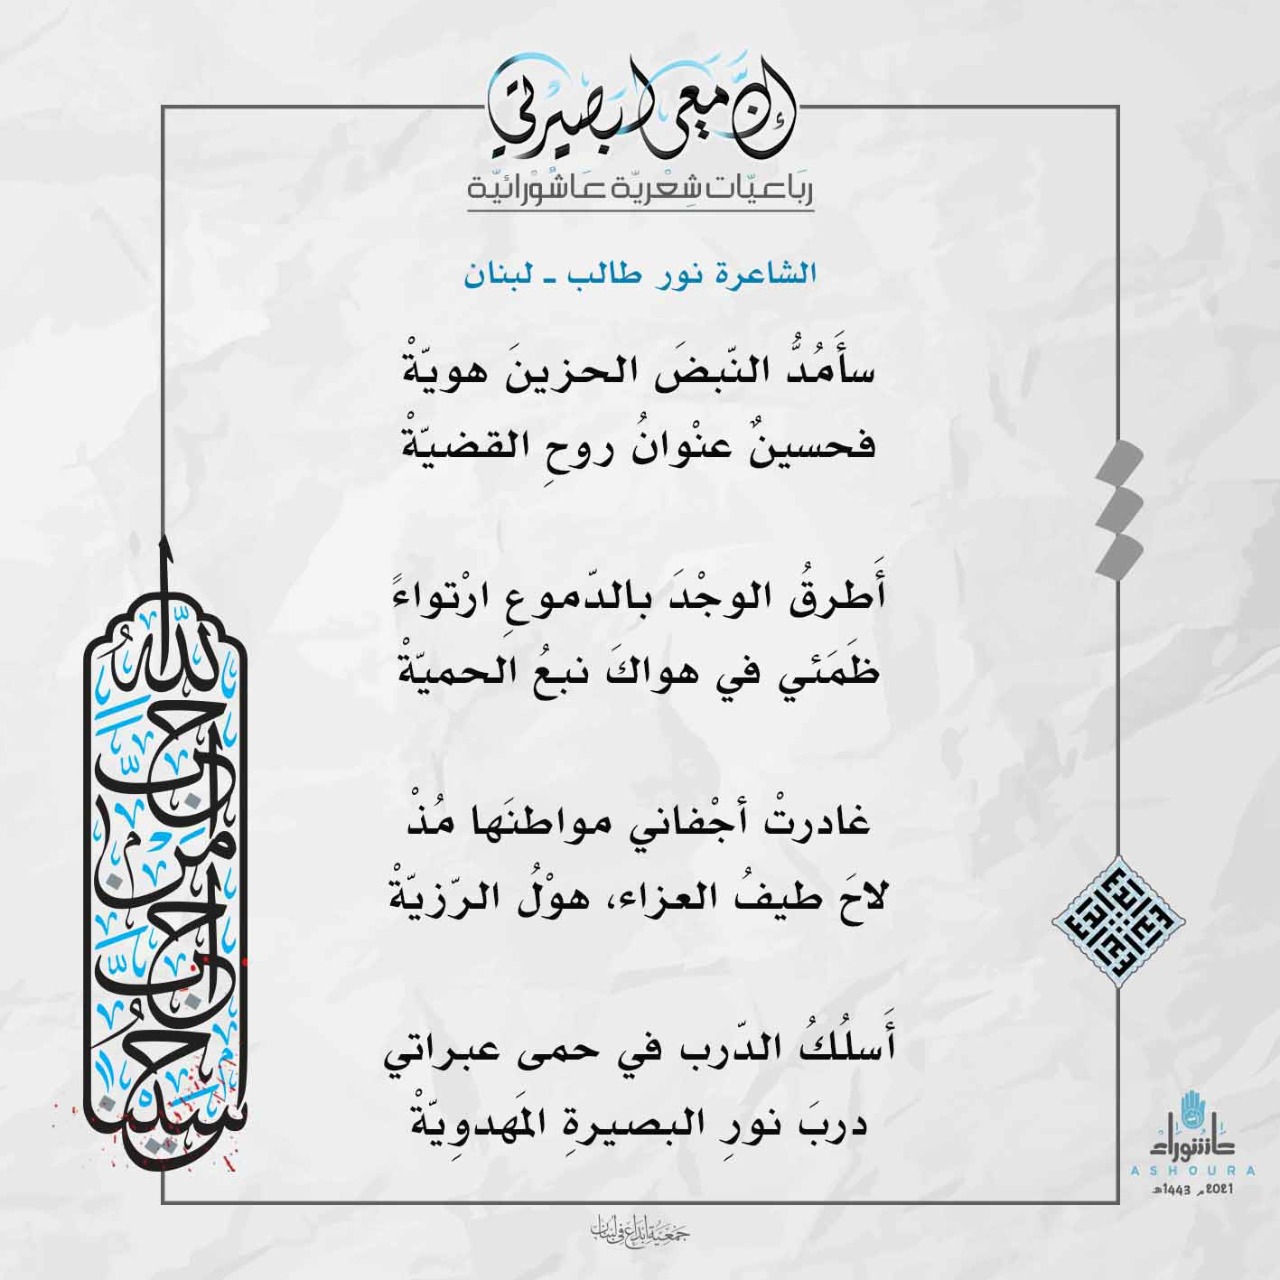 إن معي لبصيرتي
رباعيّات شِعْريّة عَاشُوْرائيّة
الشاعرة نور طالب ـ لبنان
سأَمُدُّ النّبضَ الحزينَ هويّةْ
فحسينٌ عنْوانُ روحِ القضيّةْ
أَطرقُ الوجْدَ بالدّموعِ ارْتواءً
ظَمَئي في هواكَ نبعُ الحميّةْ
غادرتْ أجْفاني مواطنَها مُذْ
لاحَ طيفُ العزاء، هوْلُ الرّزيّةْ
أَسلُكُ الدّرب في حمى عبراتي
دربَ نورِ البصيرةِ المَهدوِيّةْ
أحب الله من أحب حسينا
عاشوراء
ASHOURA
2021م 1443هـ
جمعية إبداع في لبنان